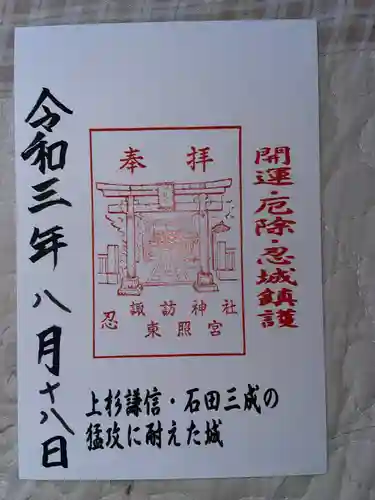 開運・厄除・忍城鎮護
奉拝
諏訪神社
忍東照宮
令和三年八月十八日
上杉謙信・石田三成の
猛攻に耐えた城